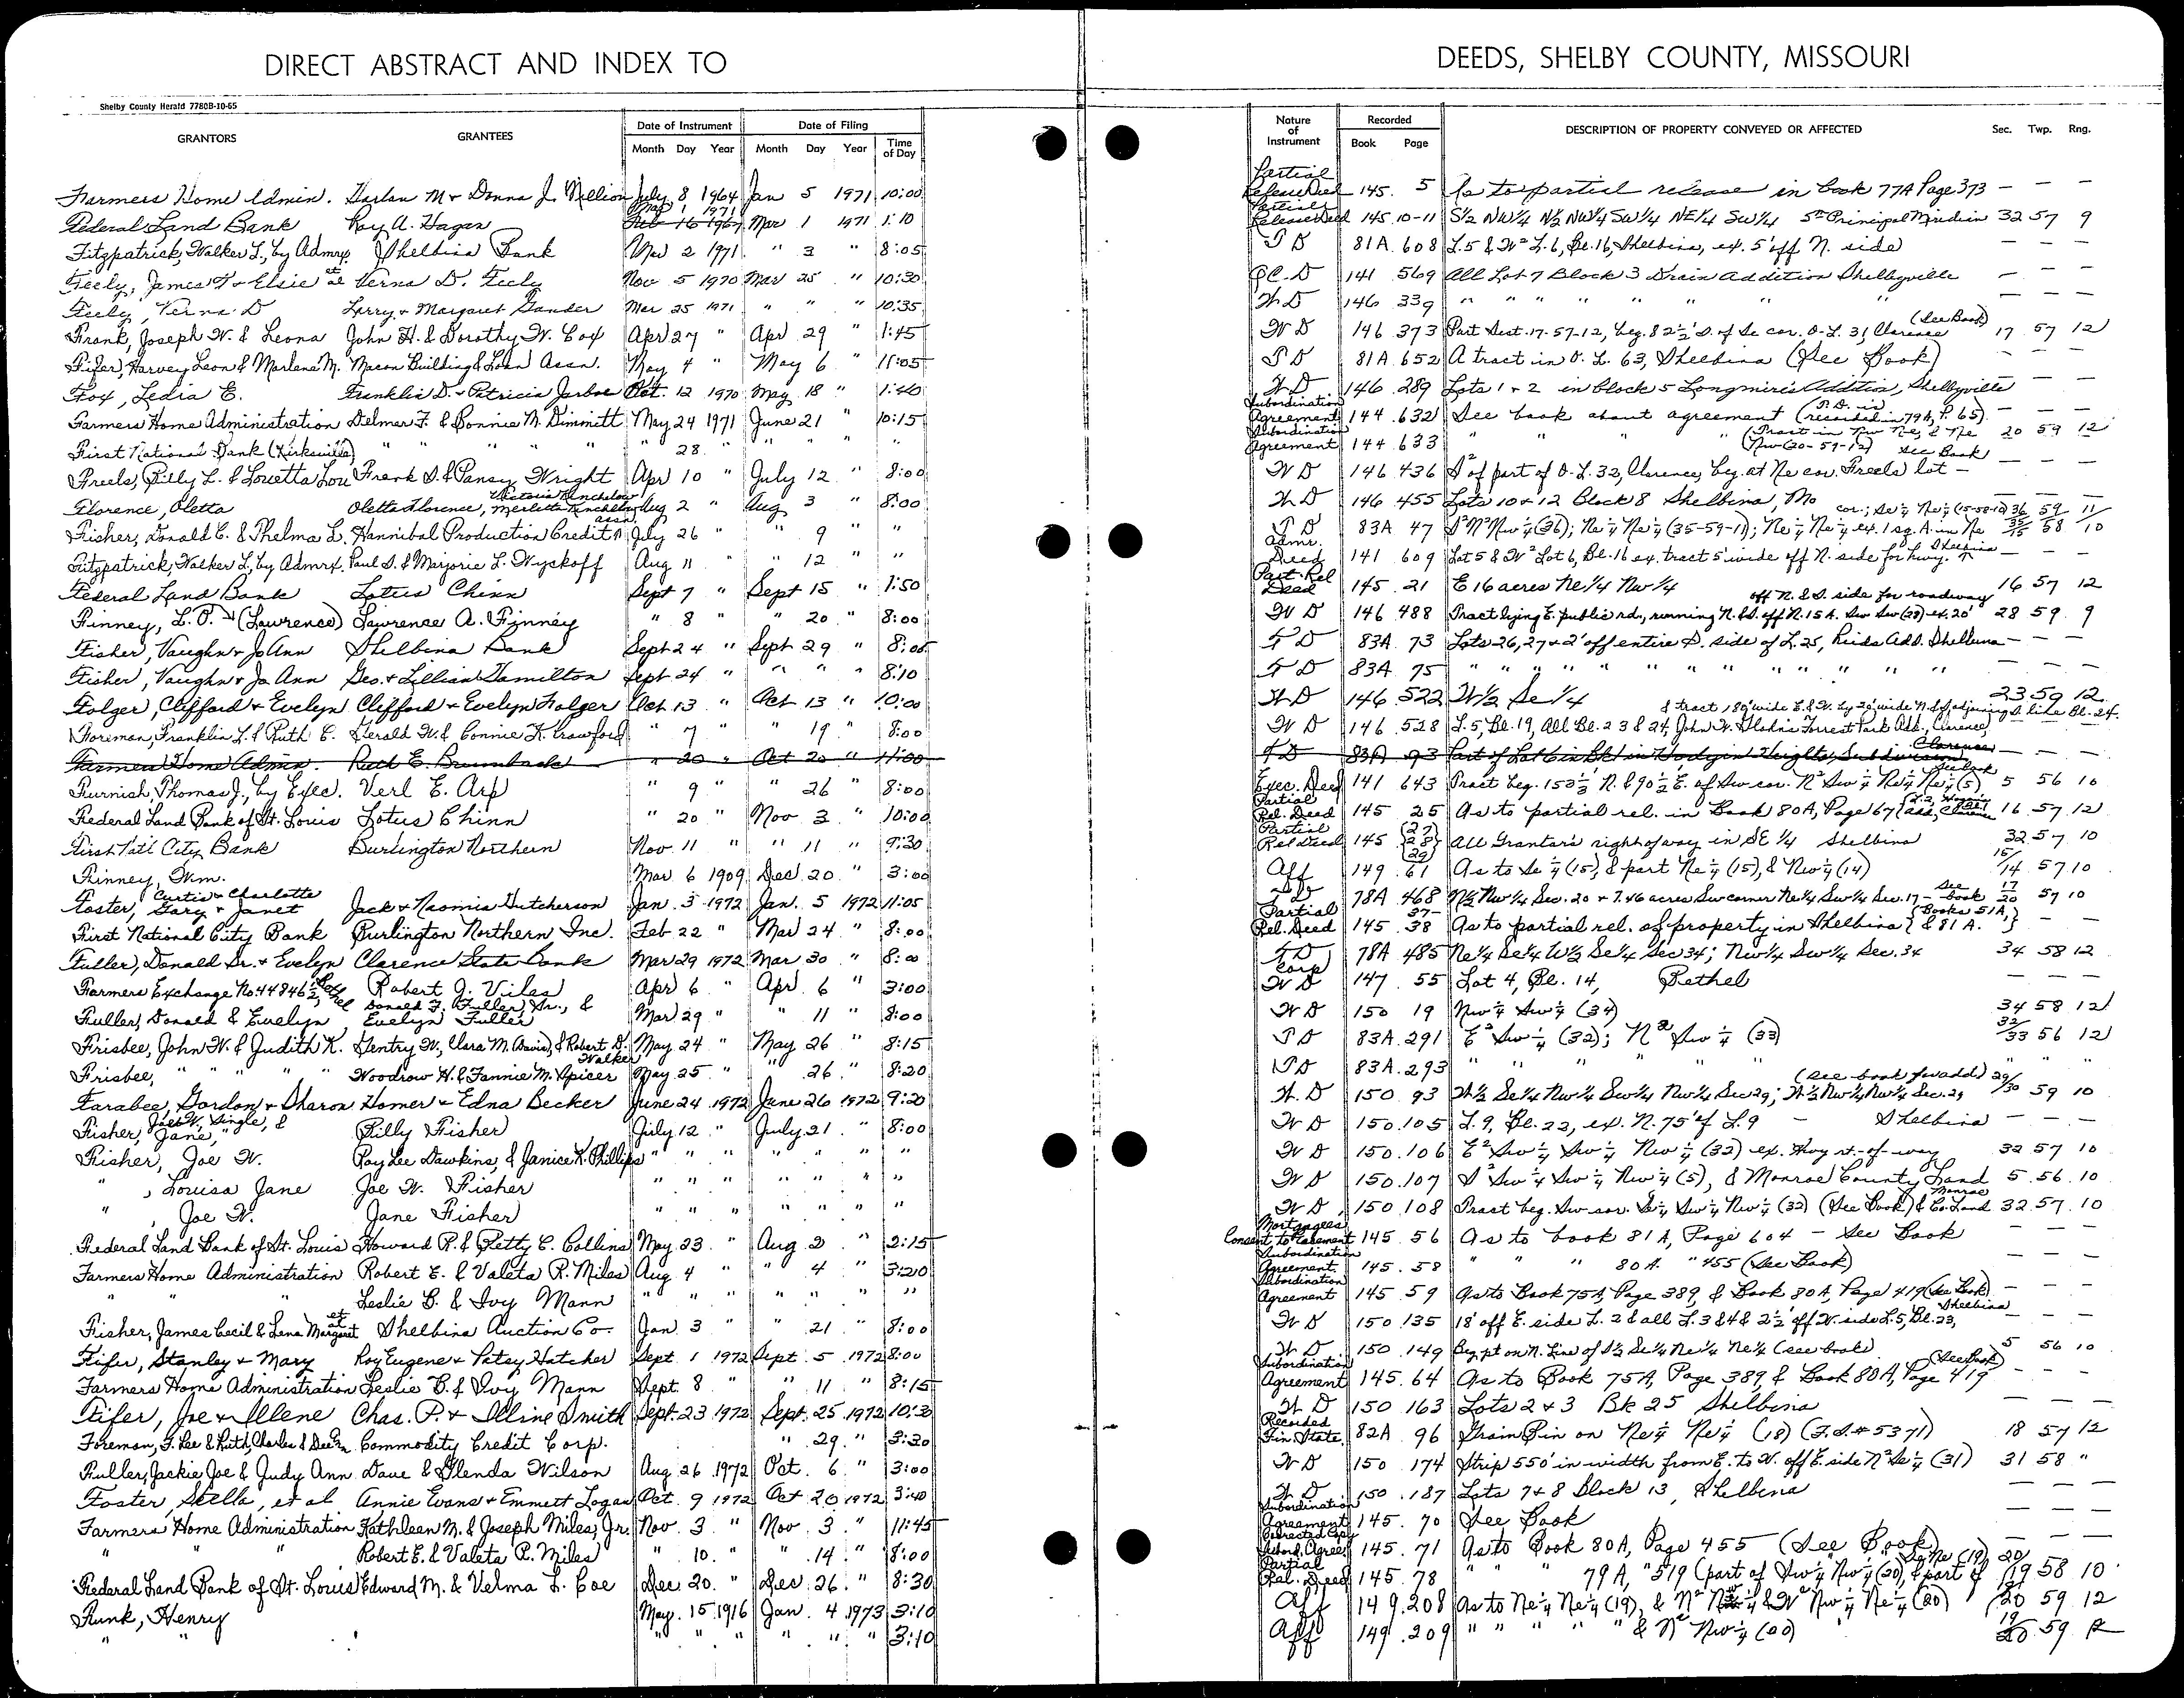 DIRECT ABSTRACT AND INDEX TO DEEDS, SHELBY COUNTY, MISSOURI
Shelby County Herald 7780B-10-65
GRANTORS GRANTEES Date of Instrument Month Day Year Date of Filing Month Day Year Time of Day Nature of Instrument Recorded Book Page DESCRIPTION OF PROPERTY CONVEYED OR AFFECTED Sec. Twp. Rng.
Farmers Home Admin. Harlan M + Donna J. Million July 8 1964 Jan 5 1971 10:00 Partial Release Deed 145 5 As to partial release in book 77A Page 373 — — —
Federal Land Bank Roy A. Hagan Feb 16 1967 Mar 1 1971 1:10 Partial Release Deed 145 10-11 S1/2 NW1/4 N1/2 NW1/4 SW1/4 NE1/4 SW1/4 5th Principal Meridian 32 57 9
Fitzpatrick, Walker L., by Admrx. Shelbina Bank Mar 2 1971 " 3 " 8:05 T D 81A 608 L.5 & W² L.6, Bl.16, Shelbina, ex. 5' off N. side — — —
Feely, James T + Elsie et al Verna D. Feely Nov 5 1970 Mar 25 " 10:30 Q.C.D 141 569 All Lot 7 Block 3 Drain Addition Shelbyville — — —
Feely, Verna D Larry + Margaret Gander Mar 25 1971 " " " 10:35 W D 146 339 " " " " " " " "
Frank, Joseph W. & Leona John H. & Dorothy W. Cox Apr 27 " Apr 29 " 1:45 W D 146 373 Part Sect. 17-57-12, beg. 82½' S. of Se cor. O-L. 31, Clarence (See Book) 17 57 12
Fifer, Harvey Leon & Marlena M. Macon Building & Loan Assn. May 4 " May 6 " 11:05 T D 81A 652 A tract in O. L. 63, Shelbina (See Book) — — —
Fox, Ledia E. Franklin D. + Patricia Jarboe Oct. 12 1970 May 18 " 1:40 W D 146 289 Lots 1 + 2 in block 5 Longmire's Addition, Shelbyville — — —
Farmers Home Administration Delmer F. & Bonnie M. Dimmitt May 24 1971 June 21 " 10:15 Subordination Agreement 144 632 See book about agreement (T.D. is recorded in 79A, P. 65) — — —
First National Bank (Kirksville) " " " " 28 " " " " Subordination Agreement 144 633 " " " " (Tract in Nw Ne, & Ne Nw (20-59-12) See Book 20 59 12
Freels, Billy L. & Louetta Lou Frank S. & Pansy Wright Apr 10 " July 12 " 8:00 W D 146 436 S² of part of O-L. 32, Clarence, beg. at Ne cor. Freels lot — — — —
Florence, Oletta Oletta Florence, Victoria Hinchelow Aug 2 " Aug 3 " 8:00 W D 146 455 Lots 10 & 12 Block 8 Shelbina, Mo — — —
Fisher, Donald C. & Thelma L. Hannibal Production Credit Assn. July 26 " " 9 " " T D 83A 47 S² N² Nw ¼ (36); Ne ¼ Ne ¼ (35-59-11); Ne ¼ Ne ¼ ex. 1 sq. A. in Ne cor.; Se ¼ Ne ¼ (15-58-10) 36 59 11 35/15 58 10
Fitzpatrick, Walker L., by Admrx. Paul D. & Marjorie L. Wyckoff Aug 11 " " 12 " " Admr. Deed 141 609 Lot 5 & W² Lot 6, Bl. 16 ex. tract 5' wide off N. side for hwy. Shelbina — — —
Federal Land Bank Lotus Chinn Sept 7 " Sept 15 " 1:50 Part. Rel Deed 145 21 E 16 acres Ne 1/4 Nw 1/4 16 57 12
Finney, L. O. (Lawrence) Lawrence A. Finney " 8 " " 20 " 8:00 W D 146 488 Tract lying E. public rd., running N. & S. off N. 15 A. Sw Sw (28) ex. 20' off N. & S. side for roadway 28 59 9
Fisher, Vaughn + Jo Ann Shelbina Bank Sept 24 " Sept 29 " 8:05 T D 83A 73 Lots 26, 27 & 2' off entire S. side of L. 25, Reids Add. Shelbina — — —
Fisher, Vaughn + Jo Ann Geo. + Lillian Hamilton Sept 24 " " " " 8:10 T D 83A 75 " " " " " " " " " " " — — —
Folger, Clifford + Evelyn Clifford + Evelyn Folger Oct 13 " Oct 13 " 10:00 W D 146 522 W 1/2 Se 1/4 23 59 12
Foreman, Franklin L. & Ruth E. Gerald W. & Connie K. Crawford " 7 " " 19 " 8:00 W D 146 528 L. 5, Bl. 19, All Bl. 23 & 24, John W. Glahn's Forrest Park Add., Clarence, & tract 180' wide E. & W. by 20' wide N. & S. adjoining S. line Bl. 24.
Farmers Home Admin. Ruth E. Brumback " 20 " Oct 20 " 11:00 T D 83A 93 Part of Lot 6 in Bk 1 in Heights Subdivision Clarence — — —
Furnish, Thomas J., by Exec. Verl E. Arp " 9 " " 26 " 8:00 Exec. Deed 141 643 Tract beg. 153½ N. & 90½ E. of Sw cor. N² Sw ¼ Ne ¼ Ne ¼ (5) See Book 5 56 10
Federal Land Bank of St. Louis Lotus Chinn " 20 " Nov 3 " 10:00 Partial Rel. Deed 145 25 As to partial rel. in Book 80A, Page 67 16 57 12
First Nat'l City Bank Burlington Northern Nov. 11 " " 11 " 9:30 Partial Rel Deed 145 (27) (28) (29) All Grantor's right of way in SE 1/4 Shelbina 32 57 10
Finney, Wm. Mar 6 1909 Dec. 20 " 3:00 Aff 149 61 As to Se ¼ (15), & part Ne ¼ (15), & Nw ¼ (14) 15/14 57 10
Foster, Curtis + Charlotte Gary + Janet Jack + Naomia Hutcherson Jan. 3 1972 Jan. 5 1972 11:05 T D 78A 468 N½ Nw ¼ Sec. 20 + 7.46 acres Sw corner Ne¼ Sw¼ Sec. 17 - See book 17/20 57 10
First National City Bank Burlington Northern Inc. Feb 22 " Mar 24 " 8:00 Partial Rel. Deed 145 37-38 As to partial rel. of property in Shelbina (Books 51A, & 81 A.) — —
Fuller, Donald Sr. + Evelyn Clarence State Bank Mar 29 1972 Mar 30 " 8:00 T D 78A 485 Ne¼ Se¼ W½ Se¼ Sec 34; Nw¼ Sw¼ Sec. 34 34 58 12
Farmers Exchange No. 44846½, Bethel Robert J. Viles Apr 6 " Apr. 6 " 3:00 Corp W D 147 55 Lot 4, Bl. 14, Bethel — — —
Fuller, Donald & Evelyn Donald F. Fuller, Sr., & Evelyn Fuller Mar 29 " " 11 " 8:00 W D 150 19 Nw ¼ Sw ¼ (34) 34 58 12
Frisbee, John W. & Judith K. Gentry W., Clara M. (Davis), & Robert D. Walker May 24 " May 26 " 8:15 T D 83A 291 E² Sw ¼ (32); N² Sw ¼ (33) 32/33 56 12
Frisbee, " " " " Woodrow H. & Fannie M. Spicer May 25 " " 26 " 8:20 T D 83A 293 " " " " " " " "
Farabee, Gordon + Sharon Homer + Edna Becker June 24 1972 June 26 1972 9:20 W. D 150 93 W½ Se¼ Nw¼ Sw¼ Nw¼ Sec 29; W½ Nw¼ Nw¼ Sec. 29 (see book for add) 29/30 59 10
Fisher, Joe W. Single, & Jane, " Billy Fisher July 12 " July 21 " 8:00 W D 150 105 L. 9, Bl. 22, ex. N. 75' of L. 9 — Shelbina — — —
Fisher, Joe W. Roy Lee Dawkins, & Janice K. Phillips " " " " " " " W D 150 106 E² Sw ¼ Sw ¼ Nw ¼ (32) ex. Hwy rt.-of-way 32 57 10
" , Louisa Jane Joe W. Fisher " " " " " " " W D 150 107 S² Sw ¼ Sw ¼ Nw ¼ (5), & Monroe County Land 5 56 10
" , Joe W. Jane Fisher " " " " " " " W D 150 108 Tract beg. Sw cor. Se ¼ Sw ¼ Nw ¼ (32) (See Book) & Monroe Co. Land 32 57 10
Federal Land Bank of St. Louis Howard R. & Betty C. Collins May 23 " Aug 2 " 2:15 Mortgagees Consent to Easement 145 56 As to book 81 A, Page 604 - See Book — — —
Farmers Home Administration Robert E. & Valeta R. Miles Aug 4 " " 4 " 3:20 Subordination Agreement 145 58 " " " 80 A. " 455 (See Book) — — —
" " " Leslie B. & Ivy Mann " " " " " " " Subordination Agreement 145 59 As to Book 75A, Page 389, & Book 80A, Page 419 (See Book) — — —
Fisher, James Cecil & Lena Margaret et al Shelbina Auction Co. Jan 3 " " 21 " 8:00 W D 150 135 18' off E. side L. 2 & all L. 3 & 4 & 2½' off W. side L. 5, Bl. 23, Shelbina — — —
Fifer, Stanley + Mary Roy Eugene + Patsy Hatcher Sept 1 1972 Sept. 5 1972 8:00 W D 150 149 Beg. pt on N. Line of S½ Se¼ Ne¼ Ne¼ (see book) 5 56 10
Farmers Home Administration Leslie B. & Ivy Mann Sept. 8 " " 11 " 8:15 Subordination Agreement 145 64 As to Book 75A, Page 389, & Book 80A, Page 419 (See Book) — — —
Fifer, Joe + Illene Chas. P. + Illine Smith Sept. 23 1972 Sept. 25 1972 10:30 W D 150 163 Lots 2 + 3 Bk 25 Shelbina — — —
Foreman, F. Lee & Ruth, Charles & Dee Commodity Credit Corp. " 29 " 3:20 Recorded Fin State. 82A 96 Grain Bin on Ne ¼ Ne ¼ (18) (F.S. # 5371) 18 57 12
Fuller, Jackie Joe & Judy Ann Dave & Glenda Wilson Aug 26 1972 Oct. 6 " 3:00 W D 150 174 Strip 550' in width from E. to W. off E. side N² Se ¼ (31) 31 58 "
Foster, Stella, et al Annie Evans + Emmett Logan Oct. 9 1972 Oct 20 1972 3:40 W D 150 187 Lots 7 + 8 Block 13, Shelbina — — —
Farmers Home Administration Kathleen M. & Joseph Miles, Jr. Nov. 3 " Nov. 3 " 11:45 Subordination Agreement 145 70 See Book — — —
" " " Robert E. & Valeta R. Miles " 10 " " 14 " 8:00 Corrected Copy Subord. Agree. 145 71 As to Book 80A, Page 455 (See Book) — — —
Federal Land Bank of St. Louis Edward M. & Velma L. Coe Dec. 20 " Dec. 26 " 8:30 Partial Rel. Deed 145 78 " " 79 A, " 519 (part of Sw ¼ Nw ¼ (20), & part of Se Ne (19) 20/19 58 10
Funk, Henry May 15 1916 Jan. 4 1973 3:10 Aff 149 208 As to Ne ¼ Ne ¼ (19), & N² & W² Nw ¼ Ne ¼ (20) 20 59 12
" " " " " " " " 3:10 Aff 149 209 " " " " " & N² Nw ¼ (20) 19/20 59 12